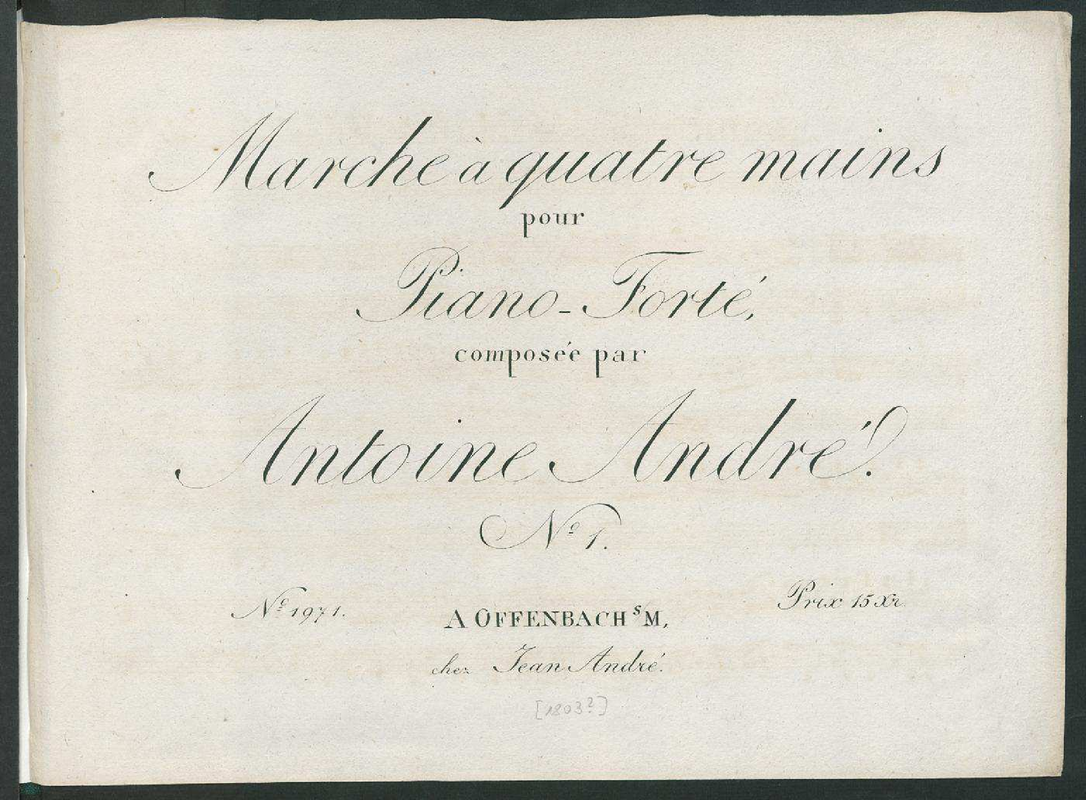 Marche à quatre mains
pour
Piano-Forté,
composée par
Antoine André.
Nº 1.
Nº 1971.
A OFFENBACH ˢM,
Prix 15 Xr.
chez Jean André.
[1803?]